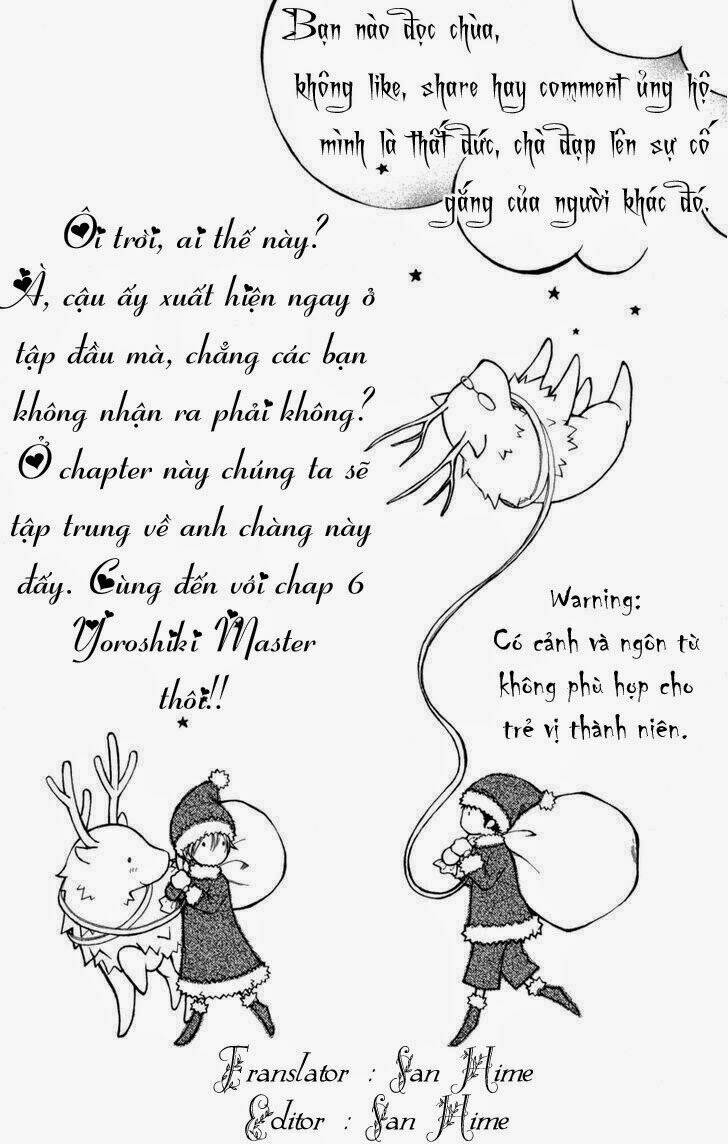 Bạn nào đọc chùa,
không like, share hay comment ủng hộ
mình là thất đức, chà đạp lên sự cố
gắng của người khác đó.
Ôi trời, ai thế này?
À, cậu ấy xuất hiện ngay ở
tập đầu mà, chẳng các bạn
không nhận ra phải không?
Ở chapter này chúng ta sẽ
tập trung về anh chàng này
đấy. Cùng đến với chap 6
Yoroshiki Master
thôi!!
Warning:
Có cảnh và ngôn từ
không phù hợp cho
trẻ vị thành niên.
Translator : San Hime
Editor : San Hime